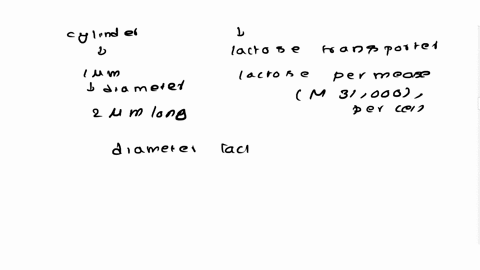 cylinder
↓
1 μm
↓ diameter
2 μm long
↓
lactose transporter
lactose permease
(M 31,000),
per cell
diameter lact